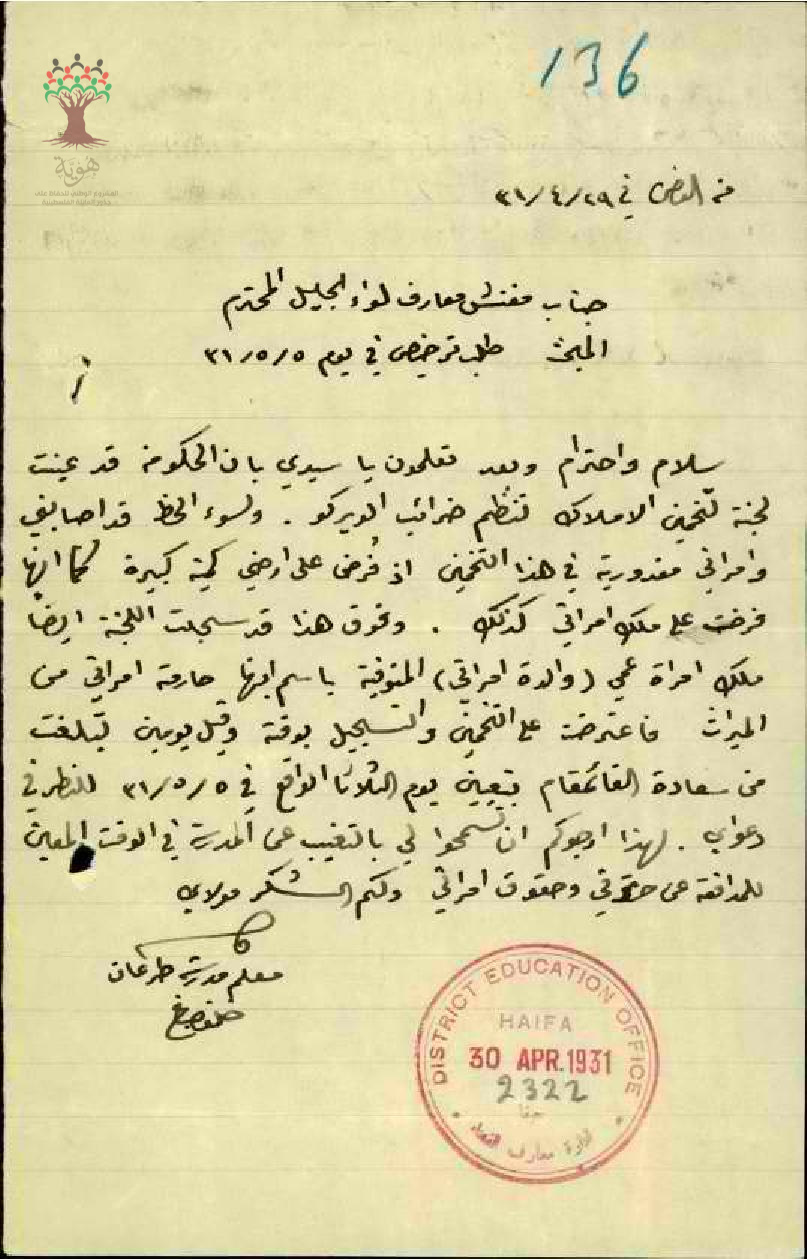 136
هوية
المشروع الوطني للحفاظ على
جذور العائلة الفلسطينية
في ٢٩/٤/٣١
جناب مفتش معارف لواء الجليل المحترم
المبحث طلب ترخيص في يوم ٥/٥/٣١
سلام واحترام وبعد تعلمون يا سيدي بان الحكومة قد عينت
لجنة لتخمين الاملاك لتنظم ضرائب الويركو . ولسوء الحظ قد اصابني
وامرأتي مغدورية في هذا التخمين اذ فُرض على ارضي كمية كبيرة كما انها
فرضت على ملك امرأتي كذلك . وفوق هذا قد سجلت اللجنة ايضاً
ملك امرأة عمي (والدة امرأتي) المتوفية باسم ابنها حارمة امرأتي من
الميراث فاعترضت على التخمين والتسجيل بوقته وقبل يومين تبلغت
من سعادة القائمقام بتعيين يوم الثلاثا الواقع في ٥/٥/٣١ للنظر في
دعواي . لهذا ارجوكم ان تسمحوا لي بالتغيب عن المدرسة في الوقت المعين
للمدافعة عن حقوقي وحقوق امرأتي ولكم الشكر مولاي
معلم مدرسة طرعان
DISTRICT EDUCATION OFFICE
HAIFA
30 APR.1931
2322
حيفا
ادارة معارف القضاء